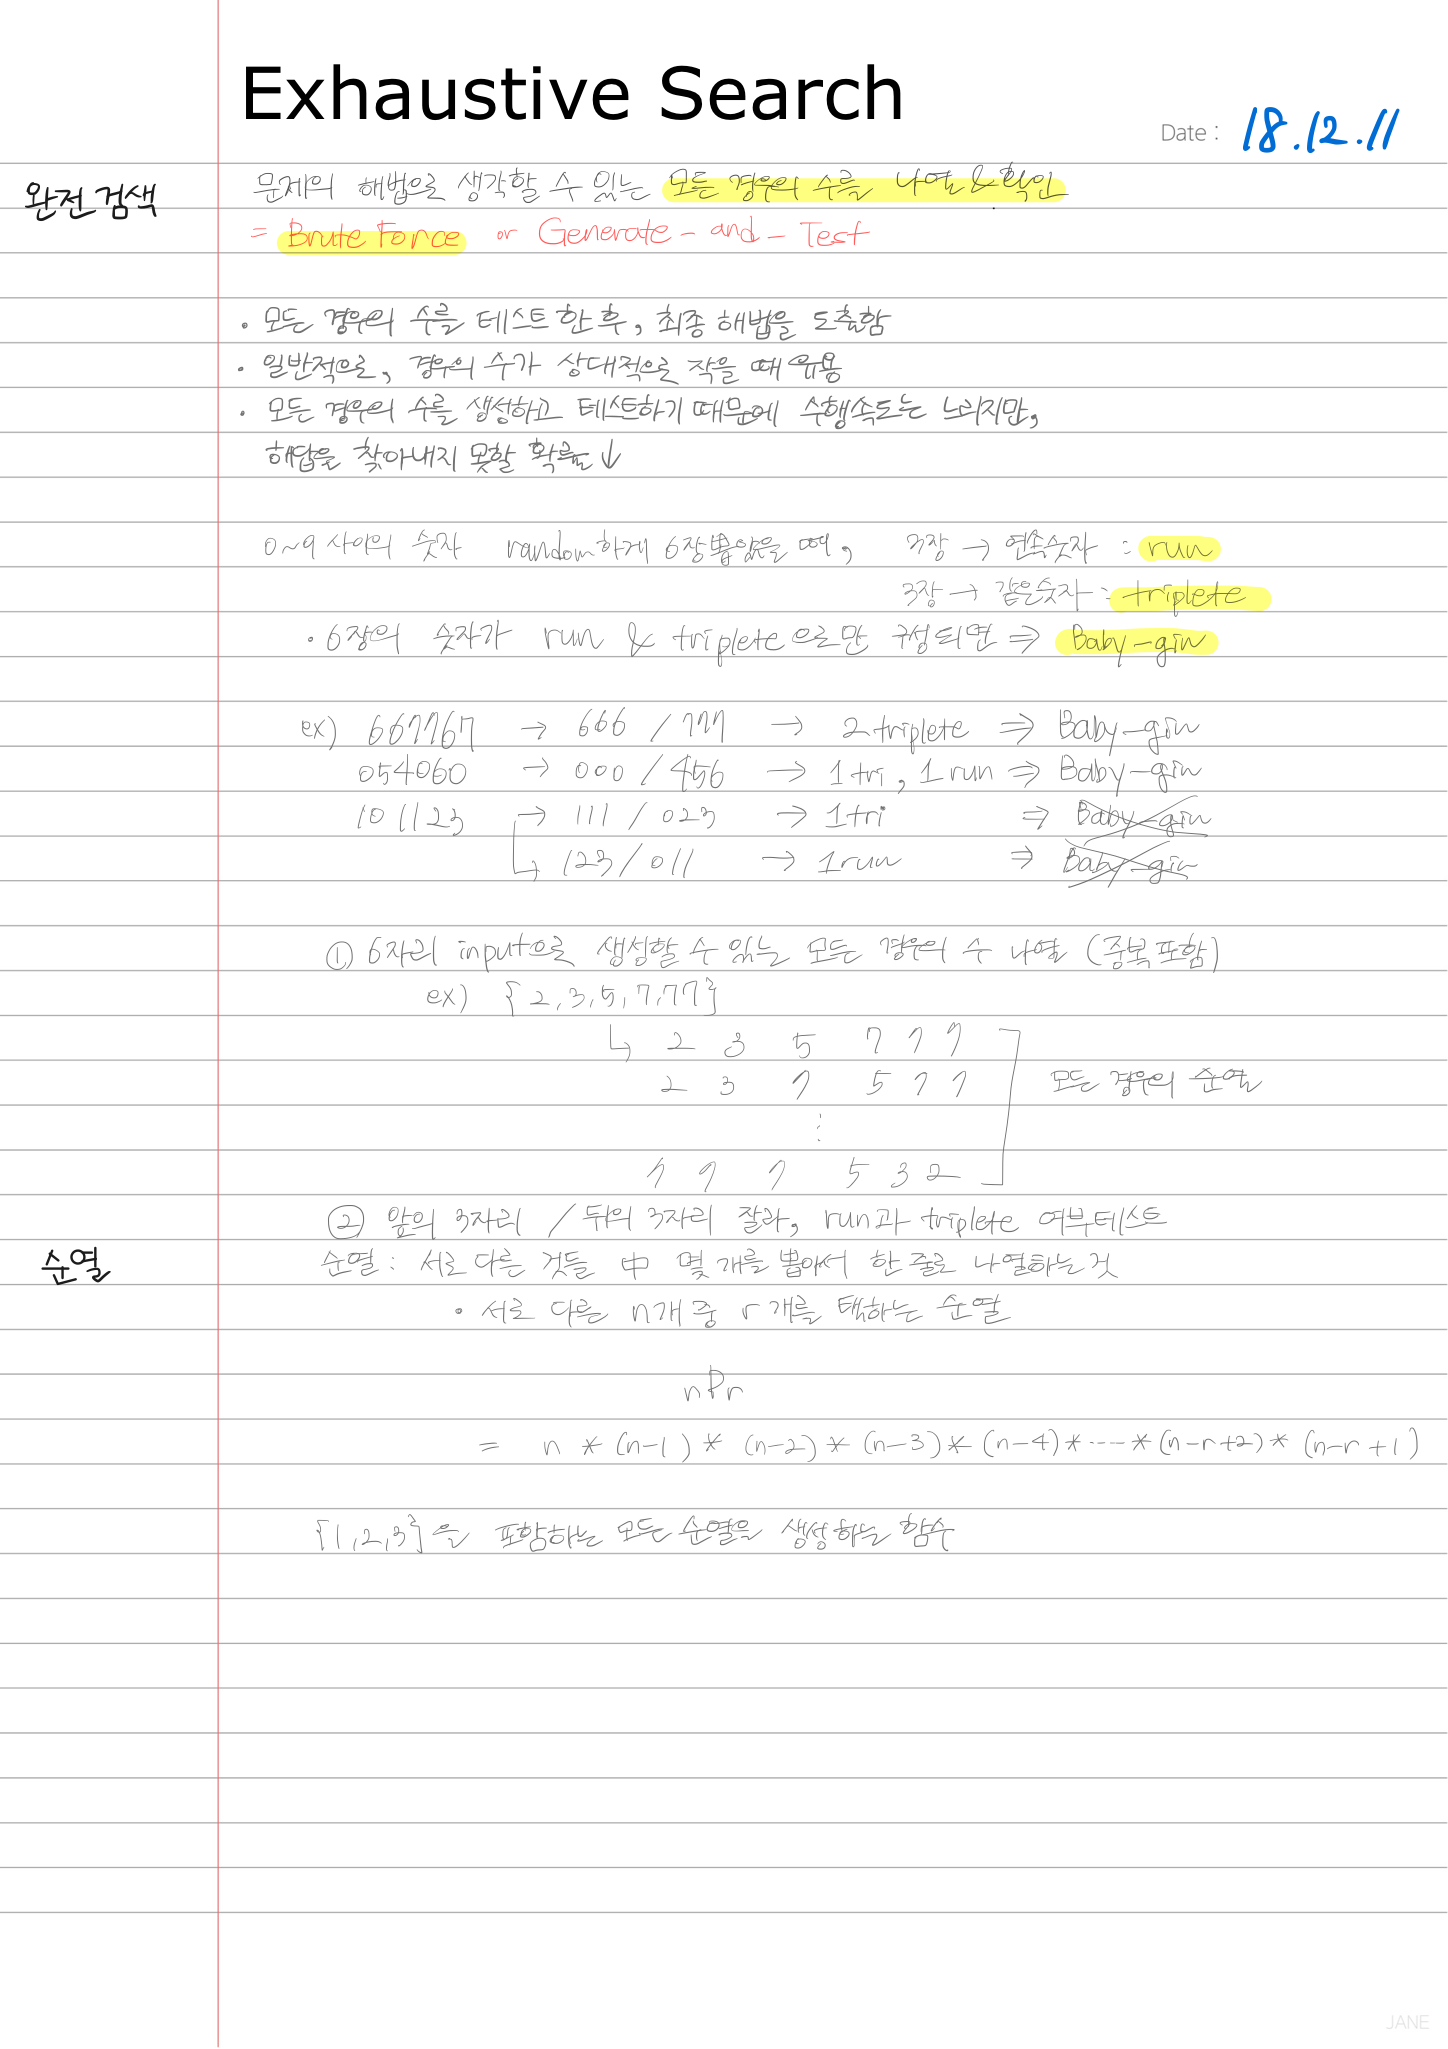 Exhaustive Search
Date : 18.12.11
완전 검색
문제의 해법으로 생각할 수 있는 모든 경우의 수를 나열 & 확인
= Brute Force or Generate-and-Test
· 모든 경우의 수를 테스트 한 후, 최종 해법을 도출함
· 일반적으로, 경우의 수가 상대적으로 작을 때 유용
· 모든 경우의 수를 생성하고 테스트하기 때문에 수행속도는 느리지만,
해답을 찾아내지 못할 확률 ↓
0~9 사이의 숫자 random하게 6장 뽑았을 때, 3장 → 연속숫자 : run
3장 → 같은숫자 : triplete
· 6장의 숫자가 run & triplete으로만 구성되면 ⇒ Baby-gin
ex) 667767 → 666 / 777 → 2 triplete ⇒ Baby-gin
054060 → 000 / 456 → 1 tri, 1 run ⇒ Baby-gin
101123 → 111 / 023 → 1 tri ⇒ Baby-gin
↳ 123 / 011 → 1 run ⇒ Baby-gin
① 6자리 input으로 생성할 수 있는 모든 경우의 수 나열 (중복 포함)
ex) {2,3,5,7,7,7}
↳ 2 3 5 7 7 7
2 3 7 5 7 7 모든 경우의 순열
⋮
7 7 7 5 3 2
② 앞의 3자리 / 뒤의 3자리 잘라, run과 triplete 여부테스트
순열
순열 : 서로 다른 것들 中 몇 개를 뽑아서 한 줄로 나열하는 것
· 서로 다른 n개 중 r개를 택하는 순열
nPr
= n * (n-1) * (n-2) * (n-3) * (n-4) * ···· * (n-r+2) * (n-r+1)
{1,2,3}을 포함하는 모든 순열을 생성하는 함수
JANE